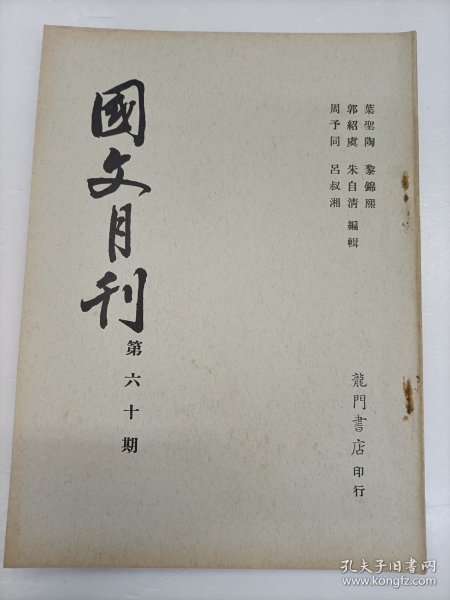 葉聖陶 黎錦熙
郭紹虞 朱自清 編輯
周予同 呂叔湘
國文月刊
第六十期
龍門書店 印行
孔夫子旧书网
www.kongfz.com